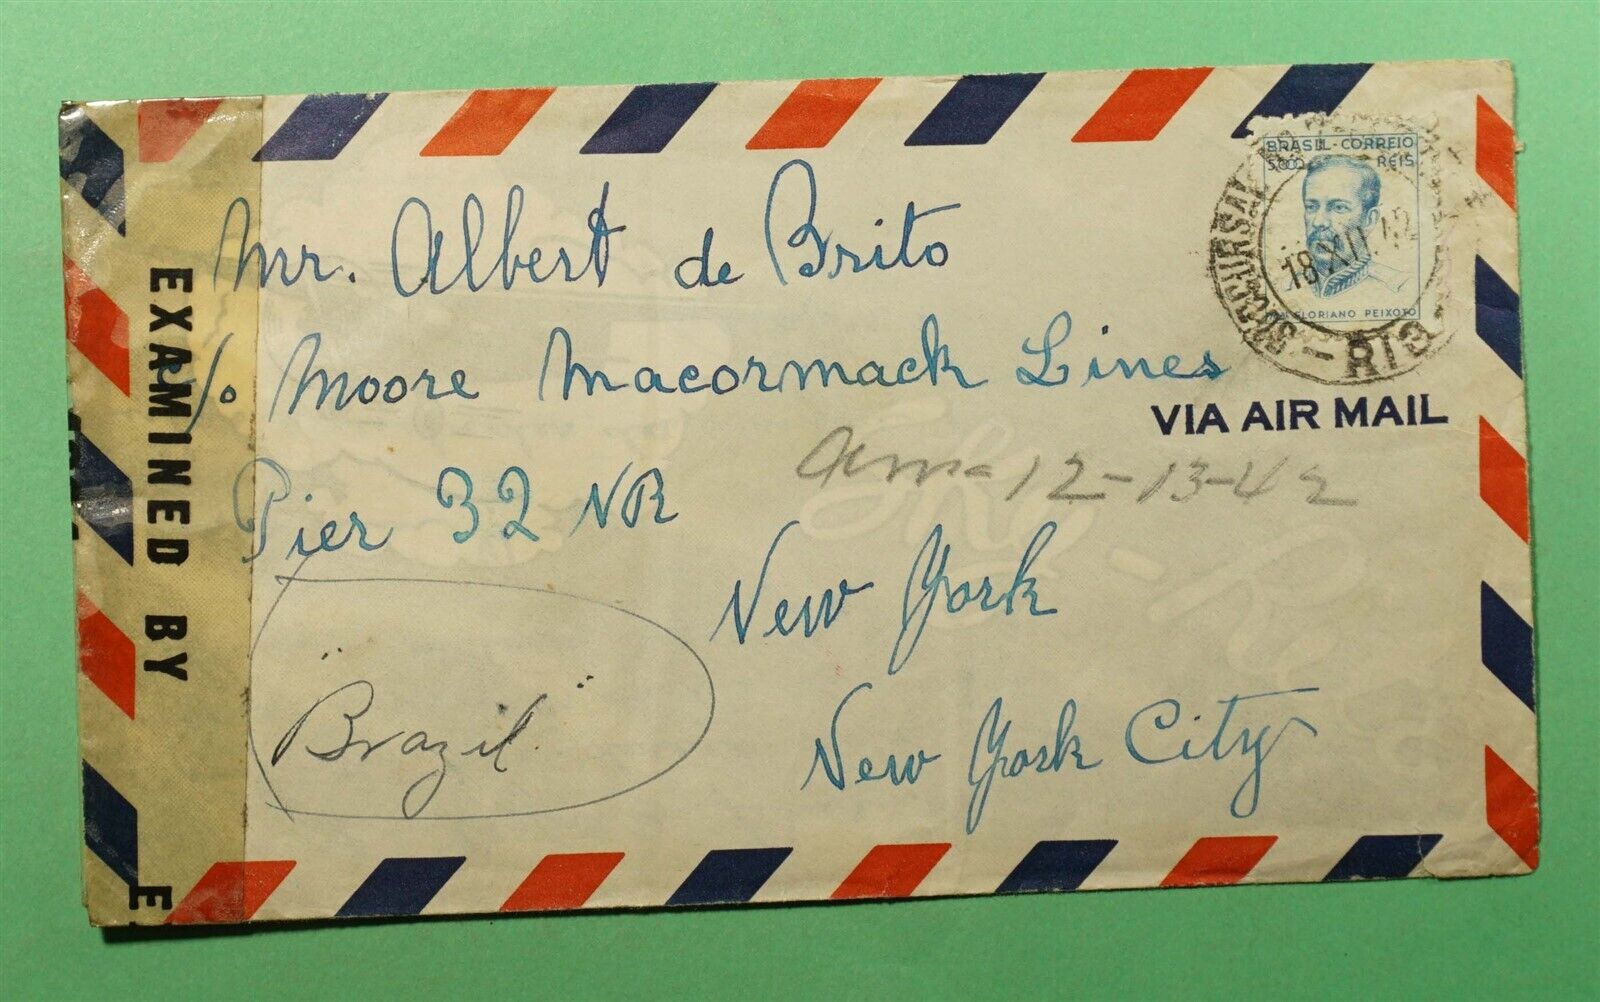 BRASIL-CORREIO
5000 REIS
FLORIANO PEIXOTO
SUCURSAL
18 XII 42
RIO
Mr. Albert de Brito
c/o Moore Macormack Lines
VIA AIR MAIL
Pier 32 NR
12-13-42
New York
"Brazil"
New York City
EXAMINED BY
E